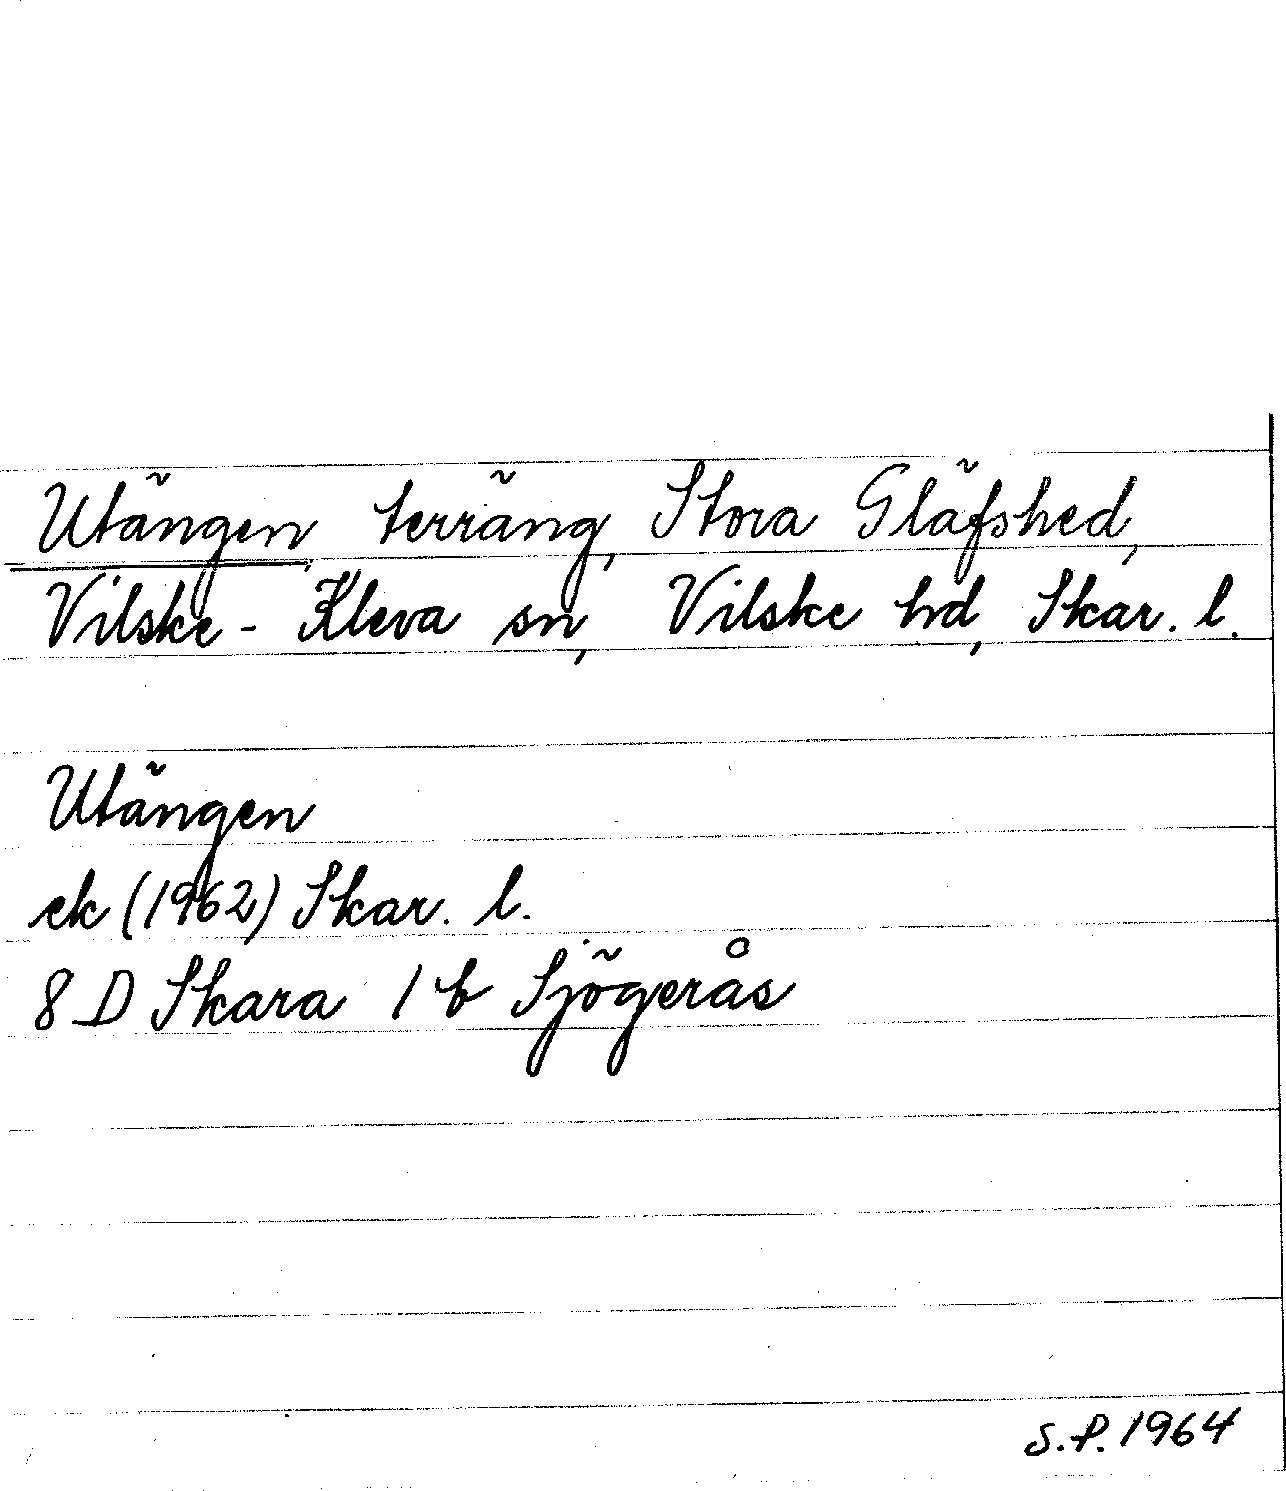 Utängen terräng, Stora Gläfshed,
Vilske-Kleva sn, Vilske hd, Skar. l.
Utängen
ek (1962) Skar. l.
8 D Skara 1 b Sjögerås
S.P. 1964